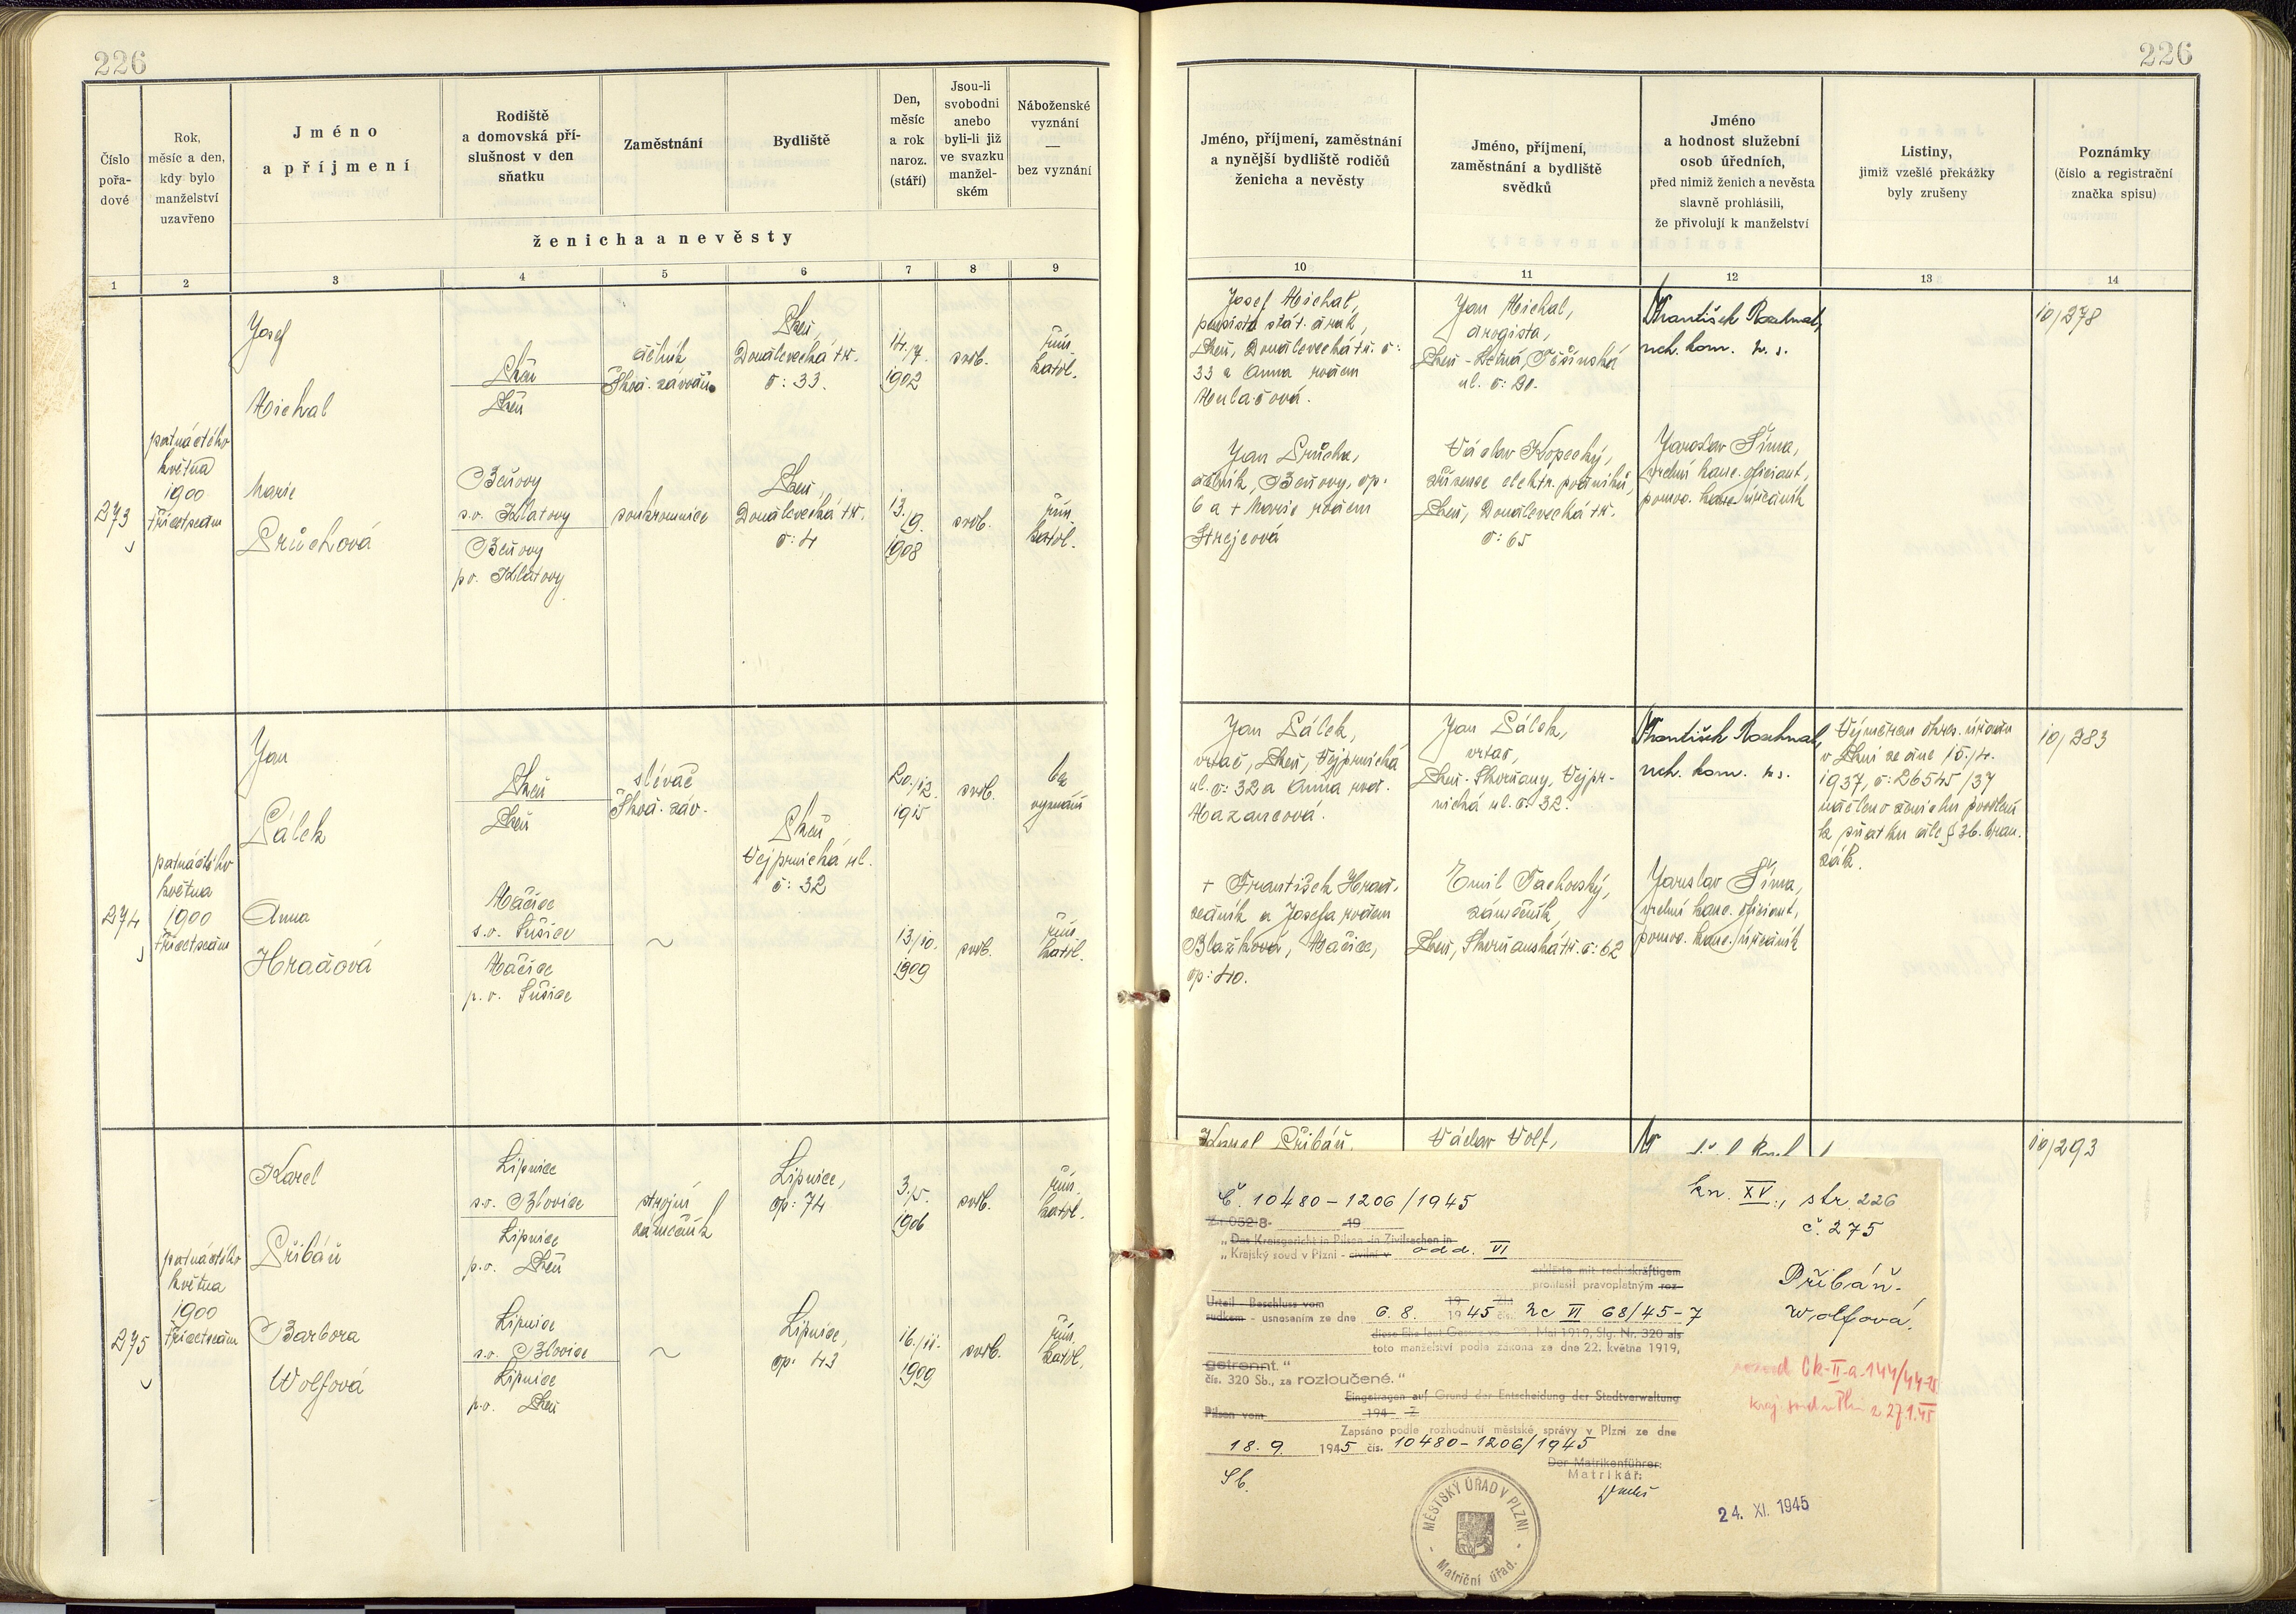 226
Číslo
pořa-
dové
Rok,
měsíc a den,
kdy bylo
manželství
uzavřeno
Jméno
a příjmení
Rodiště
a domovská pří-
slušnost v den
sňatku
Zaměstnání
Bydliště
Den,
měsíc
a rok
naroz.
(stáří)
Jsou-li
svobodni
anebo
byli-li již
ve svazku
manžel-
ském
Náboženské
vyznání
—
bez vyznání
ženicha a nevěsty
1 2 3 4 5 6 7 8 9
273
patnáctého
května
1900
třicetsedm
Josef
Michal
Plzeň
Plzeň
dělník
Škod. závodů
Plzeň,
Doudlevecká tř.
č: 33.
14./7.
1902
svob.
řím.
katol.
Marie
Průchová
Beňovy
s.o. Klatovy
Beňovy
p.o. Klatovy
soukromnice
Plzeň,
Doudlevecká tř.
č: 4
13.
/9.
1908
svob.
řím.
katol.
274
patnáctého
května
1900
třicetsedm
Jan
Pálek
Plzeň
Plzeň
slévač
Škod. záv.
Plzeň,
Vejprnická ul.
č: 32
20./12.
1915
svob.
bez
vyznání
Anna
Hradová
Mačice
s.o. Sušice
Mačice
p.o. Sušice
~
13./10.
1909
svob.
řím.
katol.
275
patnáctého
května
1900
třicetsedm
Karel
Přibáň
Lipnice
s.o. Blovice
Lipnice
p.o. Plzeň
strojní
zámečník
Lipnice,
čp: 74
3./5.
1906
svob.
řím.
katol.
Barbora
Wolfová
Lipnice
s.o. Blovice
Lipnice
p.o. Plzeň
~
Lipnice,
čp: 43
16./11.
1909
svob.
řím.
katol.
226
Jméno, příjmení, zaměstnání
a nynější bydliště rodičů
ženicha a nevěsty
Jméno, příjmení,
zaměstnání a bydliště
svědků
Jméno
a hodnost služební
osob úředních,
před nimiž ženich a nevěsta
slavně prohlásili,
že přivolují k manželství
Listiny,
jimiž vzešlé překážky
byly zrušeny
Poznámky
(číslo a registrační
značka spisu)
10 11 12 13 14
Josef Michal,
Plzeň, Doudlevecká tř. č:
33 a Anna rozen
Jan Michal,
drogista,
Plzeň - Letná, Těšínská
ul. č: 20.
František
rch. kom. v. s.
10/278
Jan Průcha,
dělník, Beňovy, čp:
6 a + Marie rozen
Strejcová
Václav Kopecký,
zřízenec elektr. podniků,
Plzeň, Doudlevecká tř.
č: 65
Jaroslav Šíma,
vrchní kanc. oficiant,
pomoc. kanc. úředník
Jan Pálek,
vrtač, Plzeň, Vejprnická
ul. č: 32 a Anna roz.
Mazancová.
Jan Pálek,
vrtač,
Plzeň - Skvrňany, Vejpr-
nická ul. č. 32.
František
rch. kom. v. s.
Výměrem okres. úřadu
v Plzni ze dne 15./4.
1937, č: 26545/37
uděleno ženichu povolení
k sňatku dle § 36. bran.
zák.
10/283
+ František Hrad,
zedník a Josefa rozen
Blažková, Mačice,
čp: 40.
Emil Tachovský,
zámečník,
Plzeň, Skvrňanská tř. č: 62
Jaroslav Šíma,
vrchní kanc. oficiant,
pomoc. kanc. úředník
Karel Přibáň,
Václav Wolf,
10/293
Č. 10480-1206/1945
kn. XV., str. 226
č. 275
Z. 0528- 19
„Das Kreisgericht in Pilsen in Zivilsachen in
„Krajský soud v Plzni - civilní v odd. VI
erklärte mit rechtskräftigem
prohlásil pravoplatným roz-
Urteil - Beschluss vom 19 Zl.
sudkem - usnesením ze dne 6. 8. 1945 čís. Nc VI 68/45-7
diese Ehe laut Gesetz vom 22. Mai 1919, Slg. Nr. 320 als
toto manželství podle zákona ze dne 22. května 1919,
getrennt."
čís. 320 Sb., za rozloučené."
Eingetragen auf Grund der Entscheidung der Stadtverwaltung
Pilsen vom 194 Z
Zapsáno podle rozhodnutí městské správy v Plzni ze dne
18. 9. 1945 čís. 10480-1206/1945
Der Matrikenführer:
Matrikář:
Přibáň -
Wolfová.
Ck-II-a-144/44-
kraj. soud v Plzni z 27.1.45
24. XI. 1945
MĚSTSKÝ ÚŘAD V PLZNI
Matriční úřad.